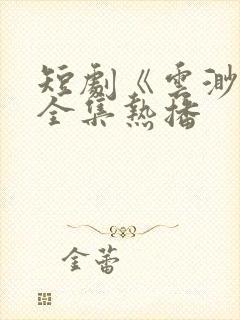 短劇《雲渺
全集熱播
金蕾